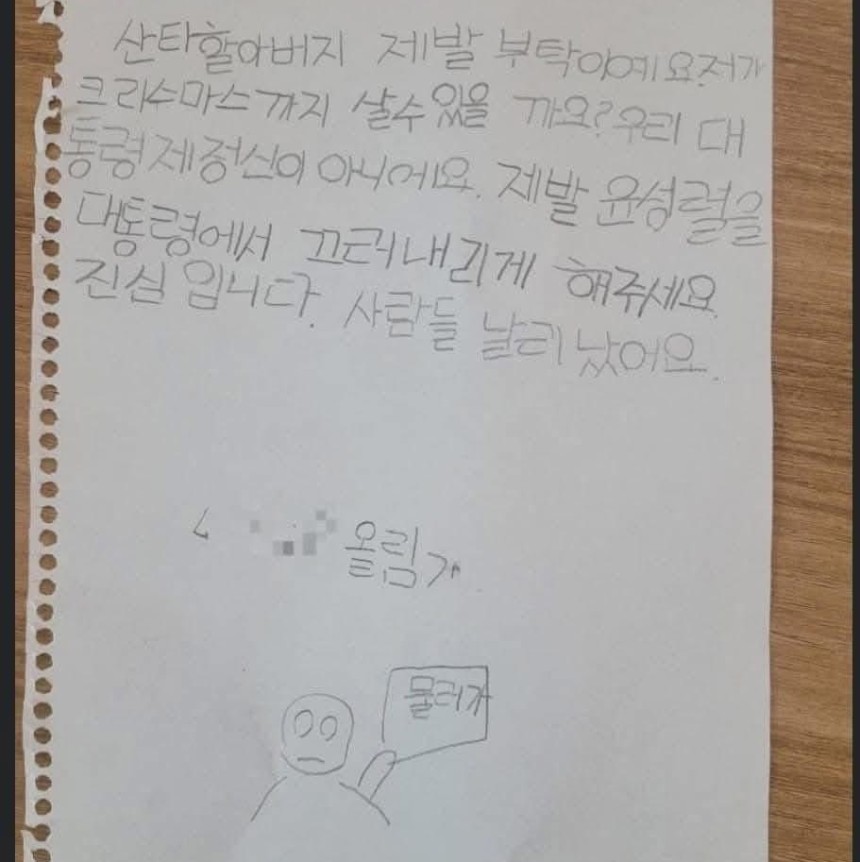 산타할아버지 제발 부탁이예요.저가
크리스마스까지 살수있을 까요?우리 대
통령제정신이 아니에요. 제발 윤성렬을
대통령에서 끄러내리게 해주세요.
진심 입니다. 사람들 날리 났어요.
올림
물러가